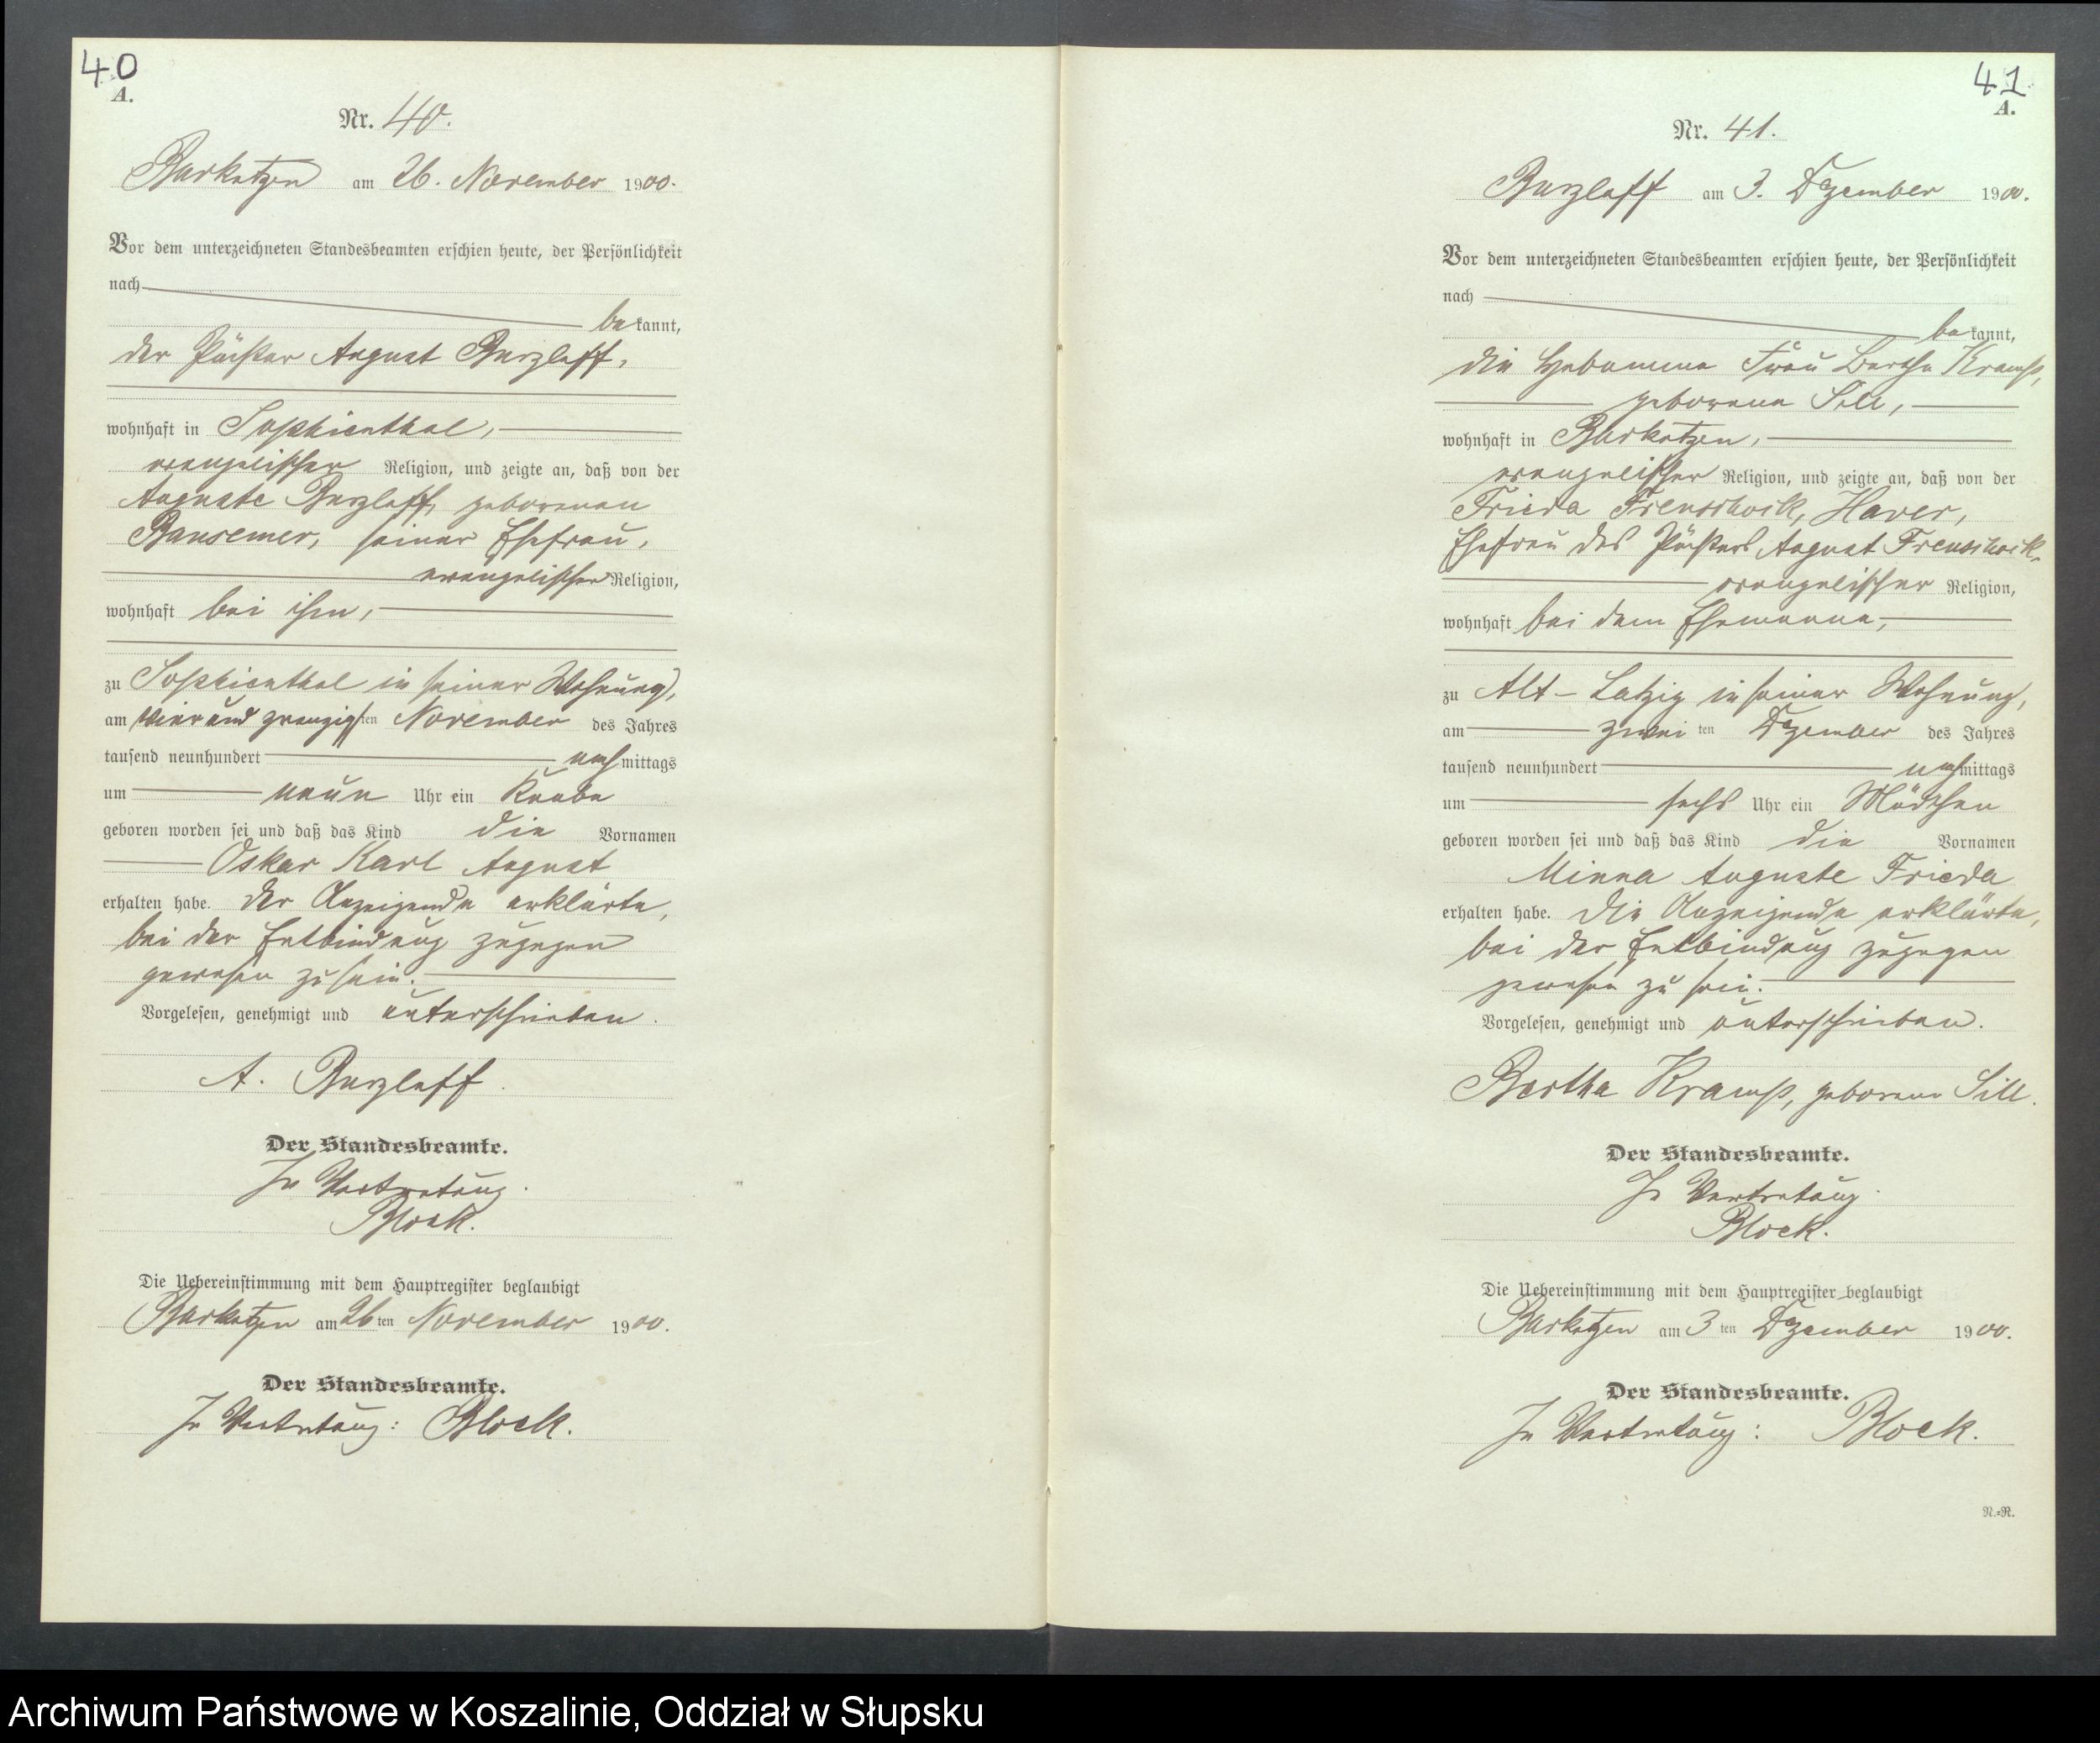 40
A.
Nr. 40.
Barkotzen am 26. November 1900.
Vor dem unterzeichneten Standesbeamten erschien heute, der Persönlichkeit
nach
bekannt,
der Pächter August Burzlaff,
wohnhaft in Sophienthal,
evangelischer Religion, und zeigte an, daß von der
Auguste Burzlaff, geborenen
Bansemer, seiner Ehefrau,
evangelischer Religion,
wohnhaft bei ihm,
zu Sophienthal in seiner Wohnung,
am vierund zwanzigsten November des Jahres
tausend neunhundert nachmittags
um neun Uhr ein Knabe
geboren worden sei und daß das Kind die Vornamen
Oskar Karl August
erhalten habe. Der Anzeigende erklärte,
bei der Entbindung zugegen
gewesen zu sein.
Vorgelesen, genehmigt und unterschrieben.
A. Burzlaff.
Der Standesbeamte.
In Vertretung.
Block.
Die Uebereinstimmung mit dem Hauptregister beglaubigt
Barkotzen am 26ten November 1900.
Der Standesbeamte.
In Vertretung: Block.
41
A.
Nr. 41.
Burzlaff am 3. Dezember 1900.
Vor dem unterzeichneten Standesbeamten erschien heute, der Persönlichkeit
nach
bekannt,
die Hebamme Frau Bertha Kramp,
geborene Sill,
wohnhaft in Barkotzen,
evangelischer Religion, und zeigte an, daß von der
Frieda geborenen Haver,
Ehefrau des Pächters August
evangelischer Religion,
wohnhaft bei dem Ehemanne,
zu Alt-Latzig in seiner Wohnung,
am zweiten Dezember des Jahres
tausend neunhundert nachmittags
um sechs Uhr ein Mädchen
geboren worden sei und daß das Kind die Vornamen
Minna Auguste Frieda
erhalten habe. Die Anzeigende erklärte,
bei der Entbindung zugegen
gewesen zu sein.
Vorgelesen, genehmigt und unterschrieben.
Bertha Kramp, geborene Sill.
Der Standesbeamte.
In Vertretung.
Block.
Die Uebereinstimmung mit dem Hauptregister beglaubigt
Barkotzen am 3ten Dezember 1900.
Der Standesbeamte.
In Vertretung: Block.
N.=R.
Archiwum Państwowe w Koszalinie, Oddział w Słupsku